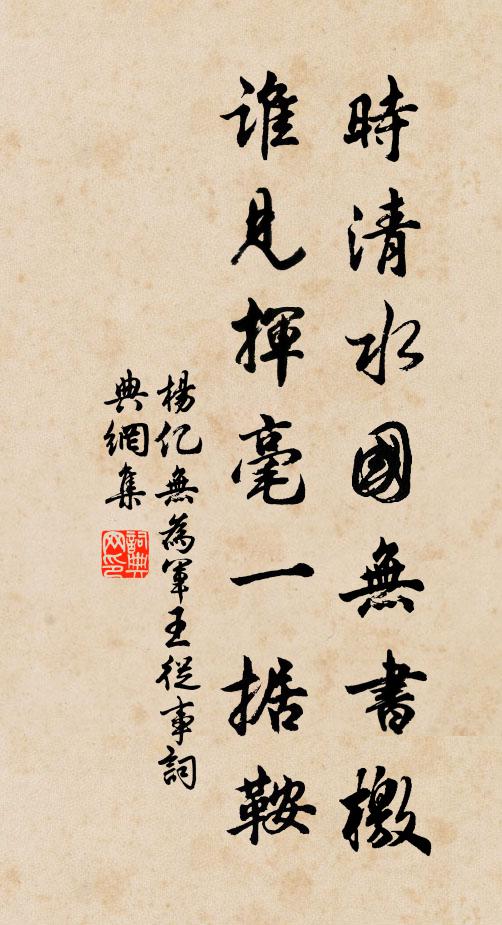 時清水國無書檄
誰見揮毫一据鞍
楊億無為軍王從事詞
典網集
詞典网印